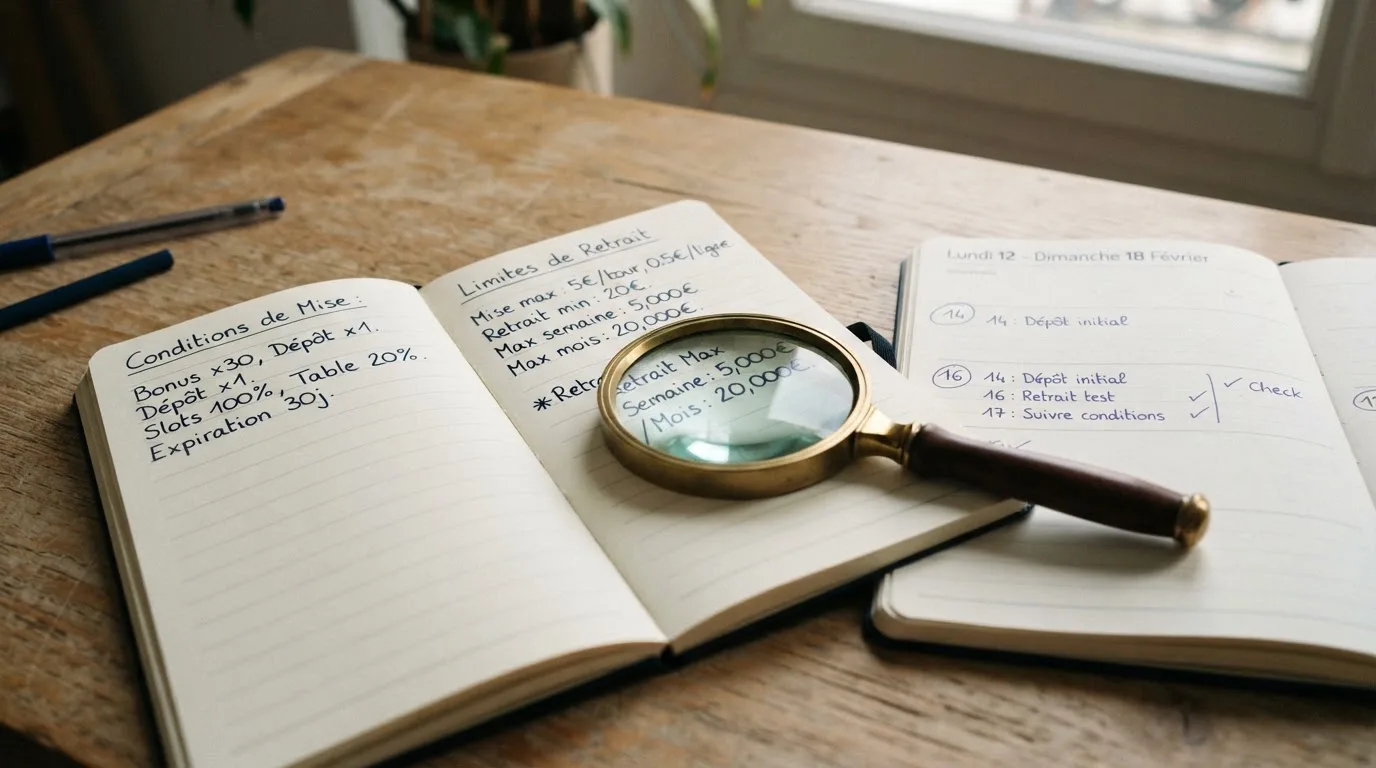 Conditions de Mise :
Bonus x30, Dépôt x1.
Dépôt x1.
Slots 100%, Table 20%.
Expiration 30j.
Limites de Retrait
Mise max : 5€/tour, 0.5€/ligne
Retrait min : 20€.
Max semaine : 5,000€
Max mois : 20,000€
*Retra
etrait Max
Semaine : 5,000€
/Mois : 20,000€.
Lundi 12 - Dimanche 18 Février
14 14 : Dépôt initial
16 14 : Dépôt initial
16 : Retrait test ✓
17 : Suivre conditions ✓
✓ Check